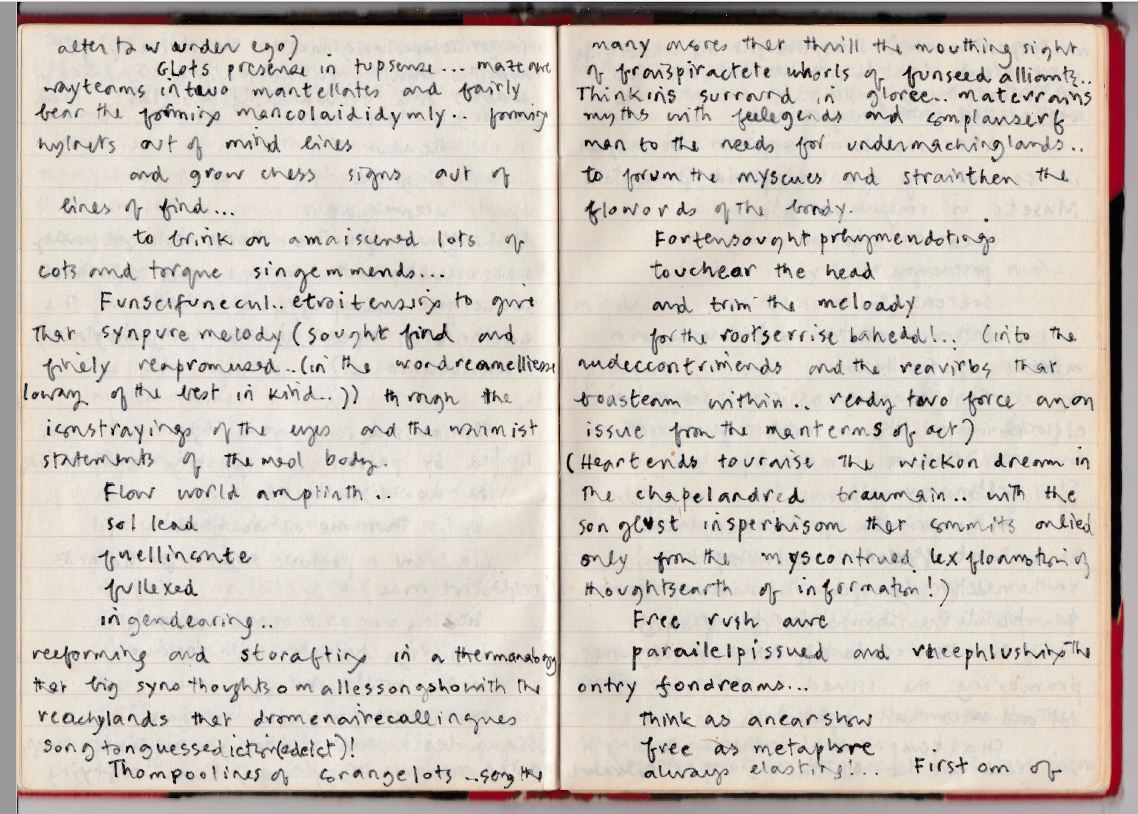 alter to wander ego)
Glots presense in tupsense... maternare
wayteams intwo mantellates and fairly
bear the forminx mancolaididymly.. forminx
hylnets out of mind lines
and grow chess signs out of
lines of find...
to brink on amaiscened lots of
cots and torque singemmends....
Funselfunecul.. etroitensix to give
that synpure melody (sought find and
finely reapromused.. (in the wordreamelliesse
loway of the best in kind..)) through the
iconstrayings of the eyes and the warmist
statements of the meol body.
Flow world amplinth...
sol lead
quellinconte
fullexed
ingendearing...
reeforming and storaftinx in a thermanalogy
that big syns thoughts om allessongshowith the
reachylands that dromenairecallingues
song tonguessed ictor(edict)!
Thompoolines of crangelots ..song the
many onsres that thrill the mouthing sight
of franspiractete whorls of funseed alliants..
Thinkins surround in gloree.. matevrains
myths with feelegends and complanserf
man to the needs for undermachinglands..
to forum the myscues and strainthen the
flowords of the bondy.
Fortensought prhymendotings
touchear the head
and trim the meloady
for the rootserrise bahead!... (into the
nudeccontrimends and the reavirbs that
toasteam within.. ready two force anon
issue from the manterms of act)
(Heartends tovraise the wickon dream in
the chapelandred traumain... with the
songlust insperhisom that commits onlied
only from the myscontrued lexfloamotion of
thoughtsearth of information!)
Free rush aure
parailelpissued and rheephlushinx the
ontry fondreams...
think as anearshow
free as metaphore
always elasting!... First om of